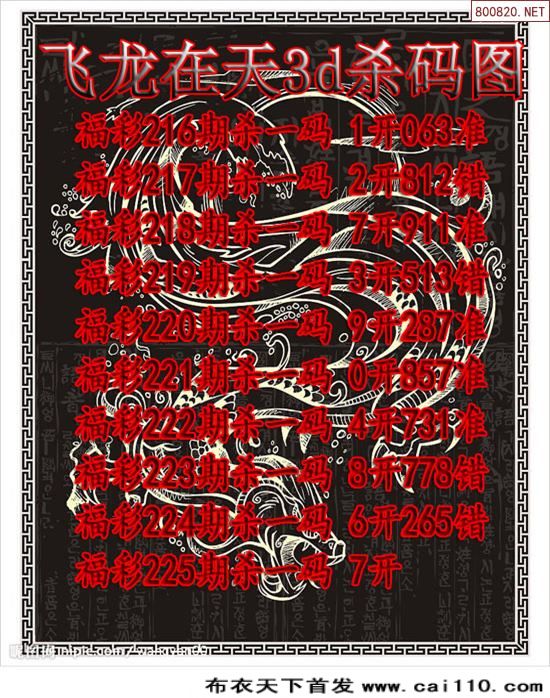 800820.NET
飞龙在天3d杀码图
福彩216期杀一码 1开063准
福彩217期杀一码 2开812错
福彩218期杀一码 7开911准
福彩219期杀一码 3开513错
福彩220期杀一码 9开287准
福彩221期杀一码 0开857准
福彩222期杀一码 4开731准
福彩223期杀一码 8开778错
福彩224期杀一码 6开265错
福彩225期杀一码 7开
布衣天下首发 www.cai110.com